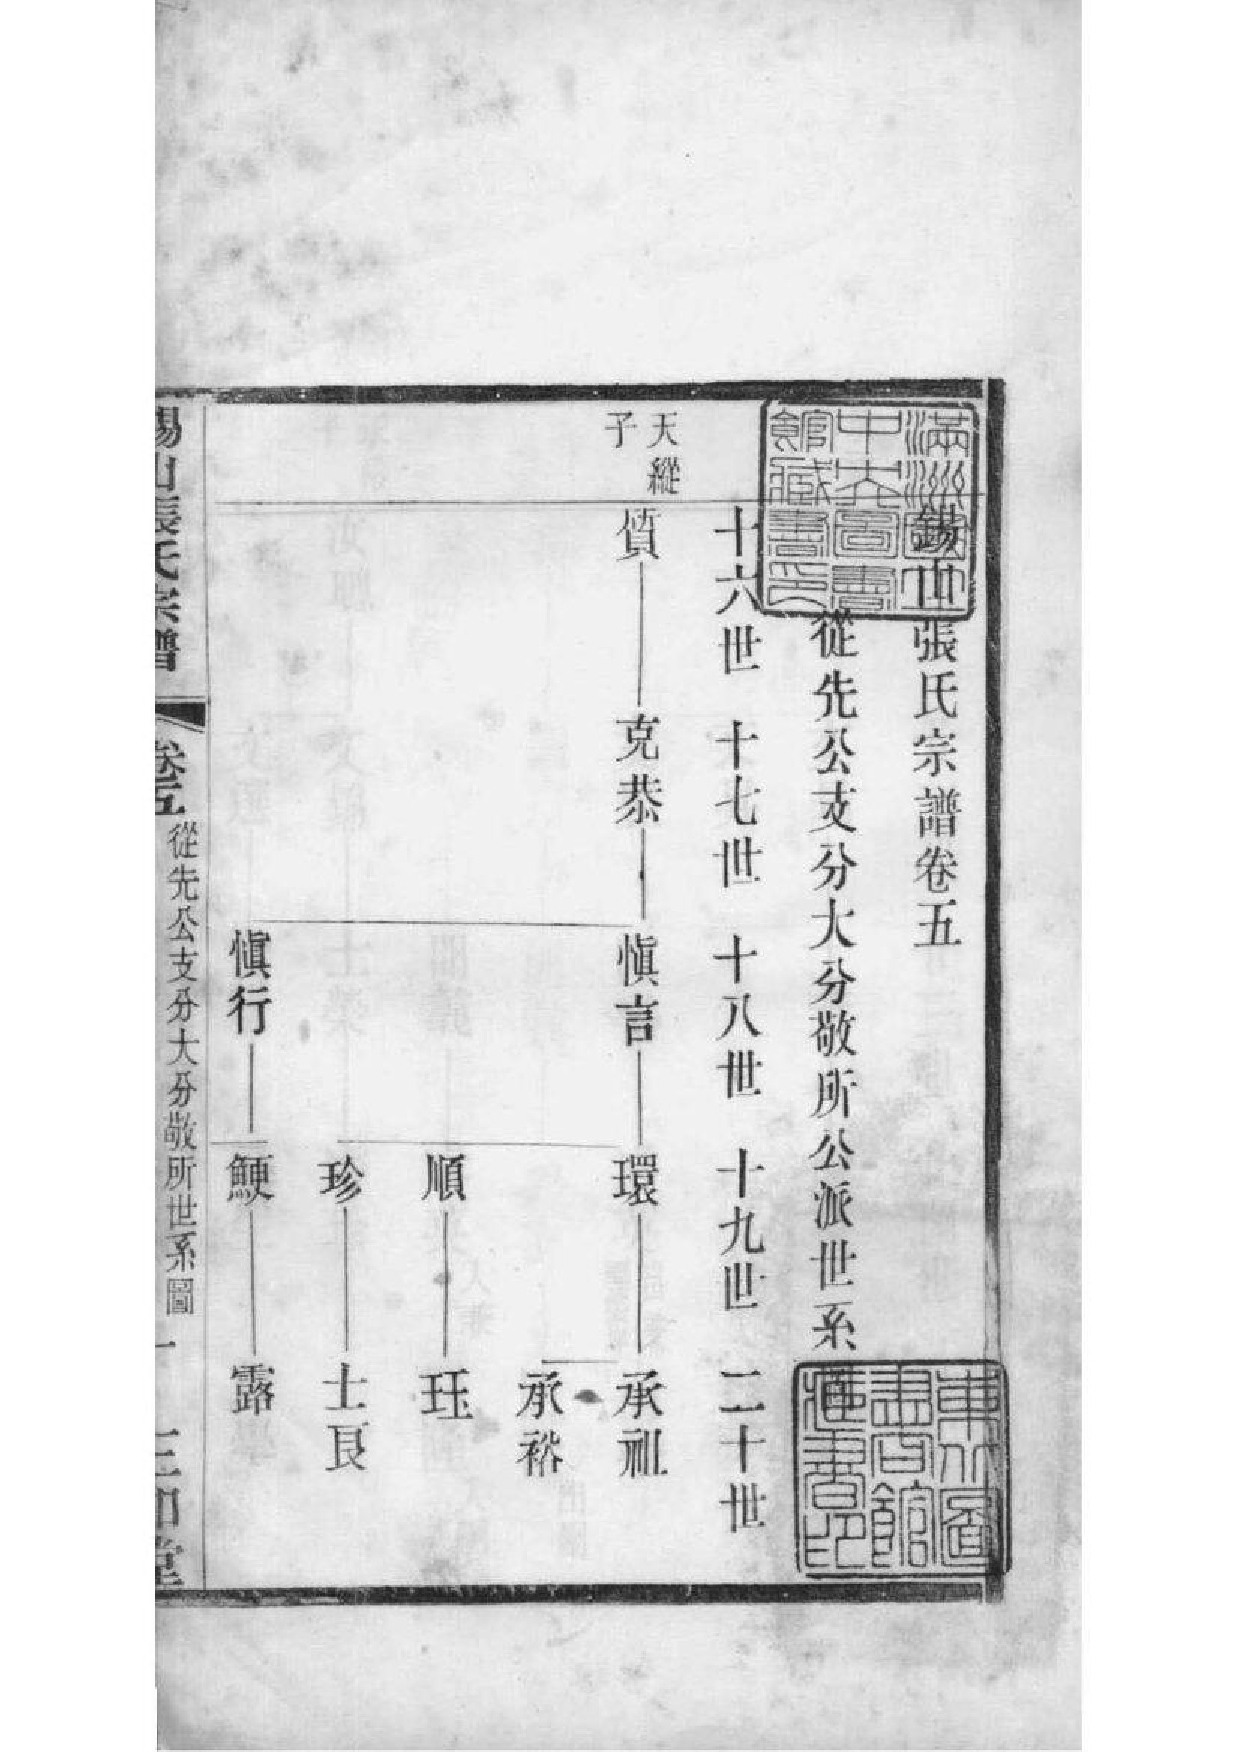 錫山張氏宗譜卷五
從先公支分大分敬所公派世系圖
十六世 十七世 十八世 十九世 二十世
天縱子
質 克恭 慎言 環 承祖
承裕
順 珏
珍 士良
慎行 鯁 露
錫山張氏宗譜 卷五 從先公支分大分敬所世系圖 一 三和堂
滿洲國
中央圖書
館藏書印
東北圖
書館
藏書印